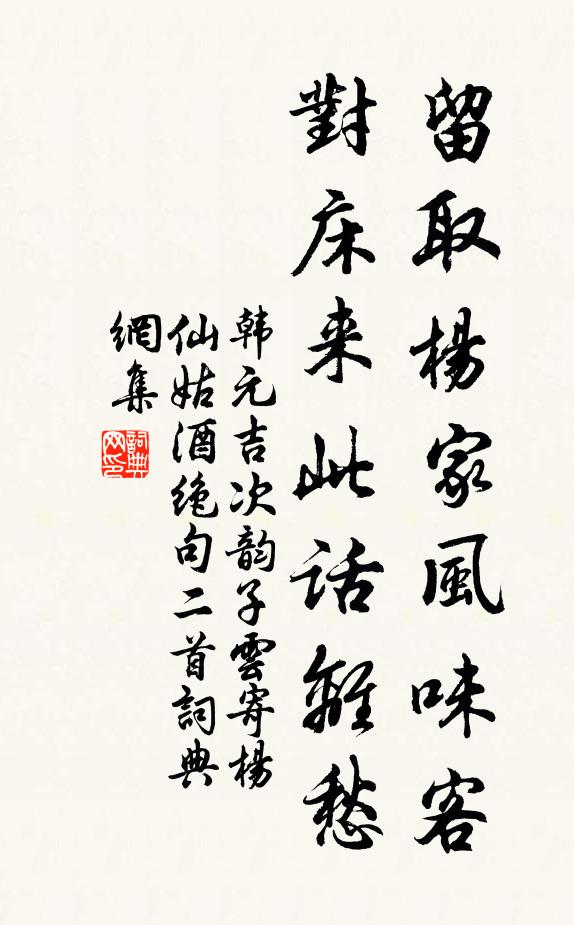 留取楊家風味客
對床来此話離愁
韩元吉次韵子雲寄楊
仙姑酒绝句二首詞典
網集
詞典网印